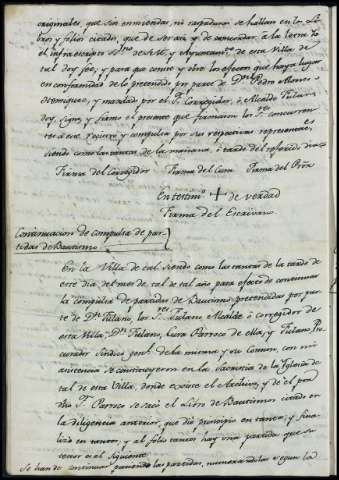 originales, que sin enmiendas, ni raspaduras se hallan en los Li-
bros y folios citados, que de ser asi, y de concordar á la letra Yo
el infraescripto SS.no de S.M. y Ayuntam.to de esta Villa de
tal doy fee, y para que conste y obre los efectos que haya lugar
en conformidad de lo pretendido por parte de D.n Pedro Alonso
Dominguez, y mandado por el S.r Corregidor, ó Alcalde Fulano
doy, signo, y firmo el presente que firmaron los S.res concurren-
tes á este requirim.to y compulsa por sus respectivas representac.es
siendo como las tantas de la mañana, ó tarde del referido dia =
Firma del Corregidor Firma del Cura Firma del P.dor
En testim.o + de verdad
Firma del Escrivano
Continuacion de compulsa de par-
tidas de Bautismo
En la Villa de tal siendo como las tantas de la tarde de
este dia, del mes de tal, de tal año para efecto de continuar
la compulsa de partidas de Bautismo pretendidas por par-
te de D.n Fulano, los S.res Fulano Alcalde ó corregidor de
esta Villa, D.n Fulano, Cura Parroco de ella, y Fulano Pro-
curador Sindico gen.l de la misma y su Comun, con mi
asistencia se constituyeron en la Sacristia de la Yglesia de
tal de esta Villa, donde existe el Archivo, y de el por
dho S.r Parroco se sacó el Libro de Bautismos citado en
la diligencia anterior, que dió principio en tantos, y fina-
lizó en tantos, y al folio tantos hay una partida que su
tenor es el siguiente
se han de continuar poniendo las partidas, numerandolas segun la